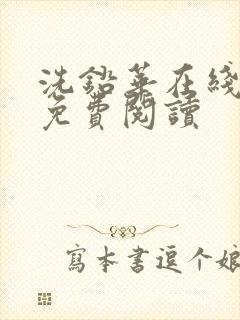 洗鉛華在綫
免費閱讀
寫本書逗个娘